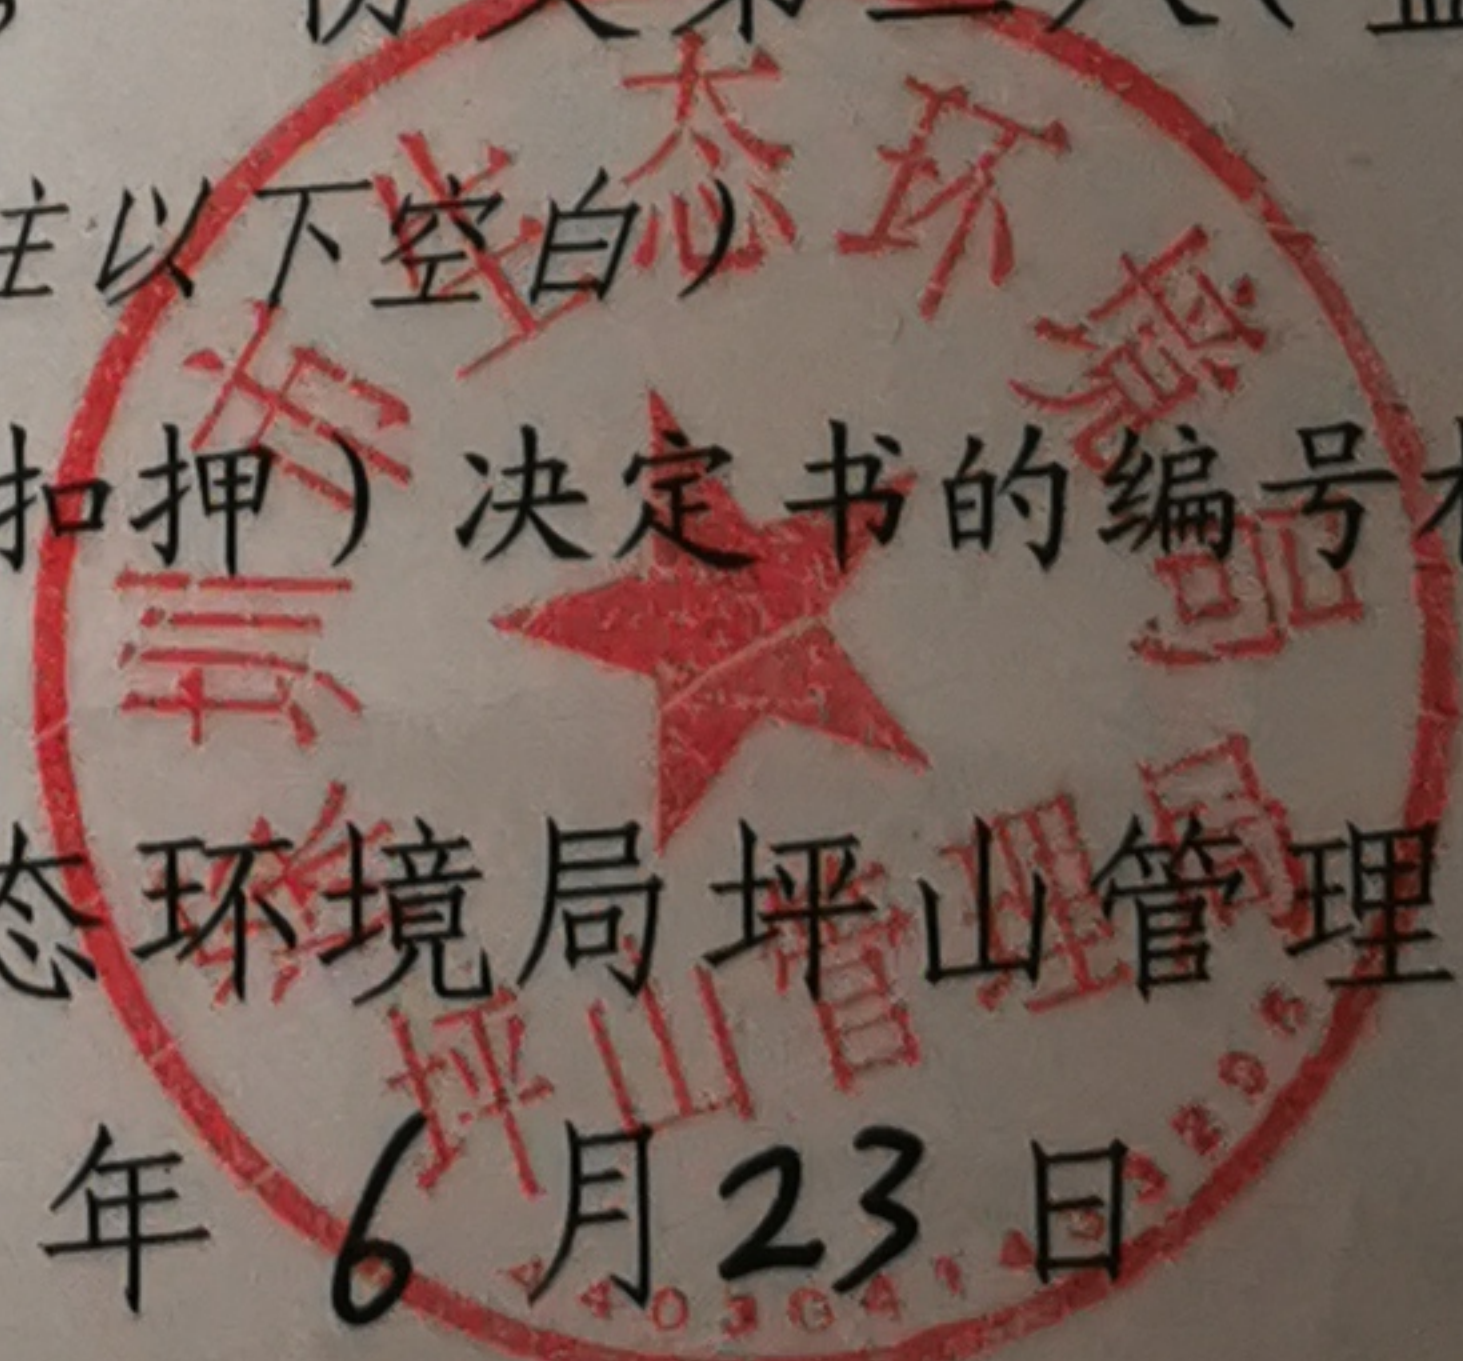 主以下空白）
扣押）决定书的编号
态环境局坪山管理
年6月23日
深圳市生态环境局
坪山管理局